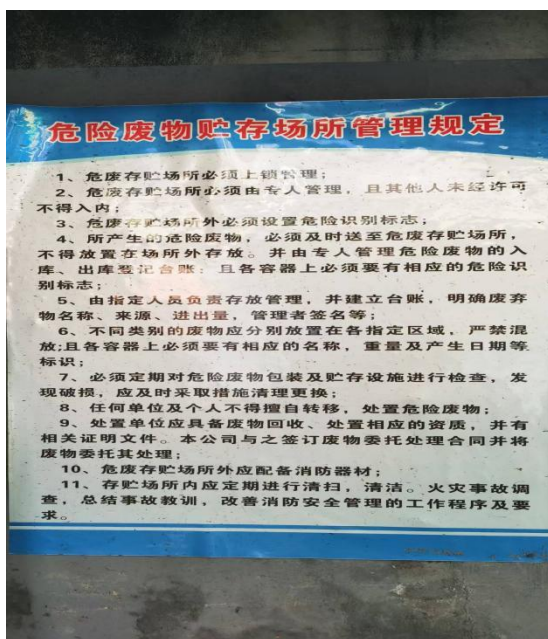 危险废物贮存场所管理规定
1、危废存贮场所必须上锁管理;
2、危废存贮场所必须由专人管理,且其他人未经许可
不得入内;
3、危废存贮场所外必须设置危险识别标志;
4、所产生的危险废物,必须及时送至危废存贮场所,
不得放置在场所外存放。并由专人管理危险废物的入
库、出库登记台账;且各容器上必须要有相应的危险识
别标志;
5、由指定人员负责存放管理,并建立台账,明确废弃
物名称、来源、进出量,管理者签名等;
6、不同类别的废物应分别放置在各指定区域,严禁混
放;且各容器上必须要有相应的名称,重量及产生日期等
标识;
7、必须定期对危险废物包装及贮存设施进行检查,发
现破损,应及时采取措施清理更换;
8、任何单位及个人不得擅自转移,处置危险废物;
9、处置单位应具备废物回收、处置相应的资质,并有
相关证明文件。本公司与之签订废物委托处理合同并将
废物委托其处理;
10、危废存贮场所外应配备消防器材;
11、存贮场所内应定期进行清扫,清洁。火灾事故调
查,总结事故教训,改善消防安全管理的工作程序及要
求。